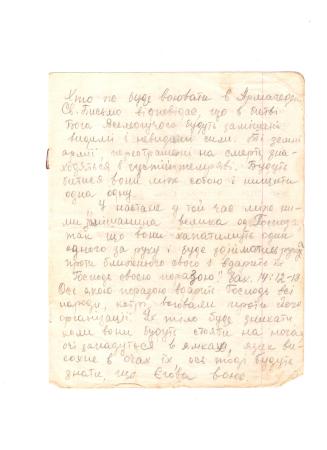 Хто по буде воювати в Армагедон
Св. Письмо відповідає, що в битві
Бога Всемогучого будуть заміщені
видимі і невидимі сили. Ті земні
армії, перестрашені на смерть зна-
ходяться в густій темряві. Будуть
битися вони між собою і нищити
одна одну.
"І настане у той час між ни-
ми мішанина велика од Господа
так що вони хапатимуть один
одного за руку і буде
проти ближнього свого і вдарить їх
Господь своєю поразою" Зах. 14:12-13
Ось якою поразою вдарить Господь всі
народи, котрі воювали проти його
організації. Їх тіло буде зникати
коли вони будуть стояти на ногах
очі западуться в ямках, язик ви-
сохне в отах їх ось тоді будуть
знати, що Єгова воює.